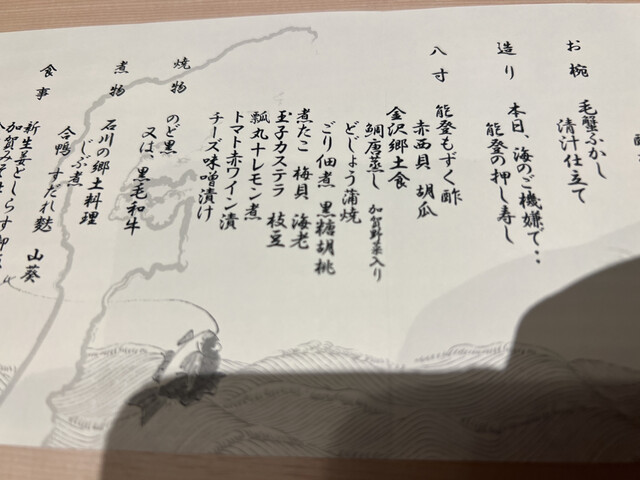 お椀
毛蟹ふかし
清汁仕立て
造り
本日、海のご機嫌で・・
能登の押し寿し
八寸
能登もずく酢
赤西貝 胡瓜
金沢郷土食
鯛唐蒸し 加賀野菜入り
どじょう蒲焼
ごり佃煮 黒糖胡桃
煮たこ 梅貝 海老
玉子カステラ 枝豆
瓢丸十レモン煮
トマト赤ワイン漬
チーズ味噌漬け
焼物
のど黒
又は、黒毛和牛
煮物
石川の郷土料理
じぶ煮
合鴨 すだれ麩 山葵
食事
新生姜としらす御飯
加賀みそ